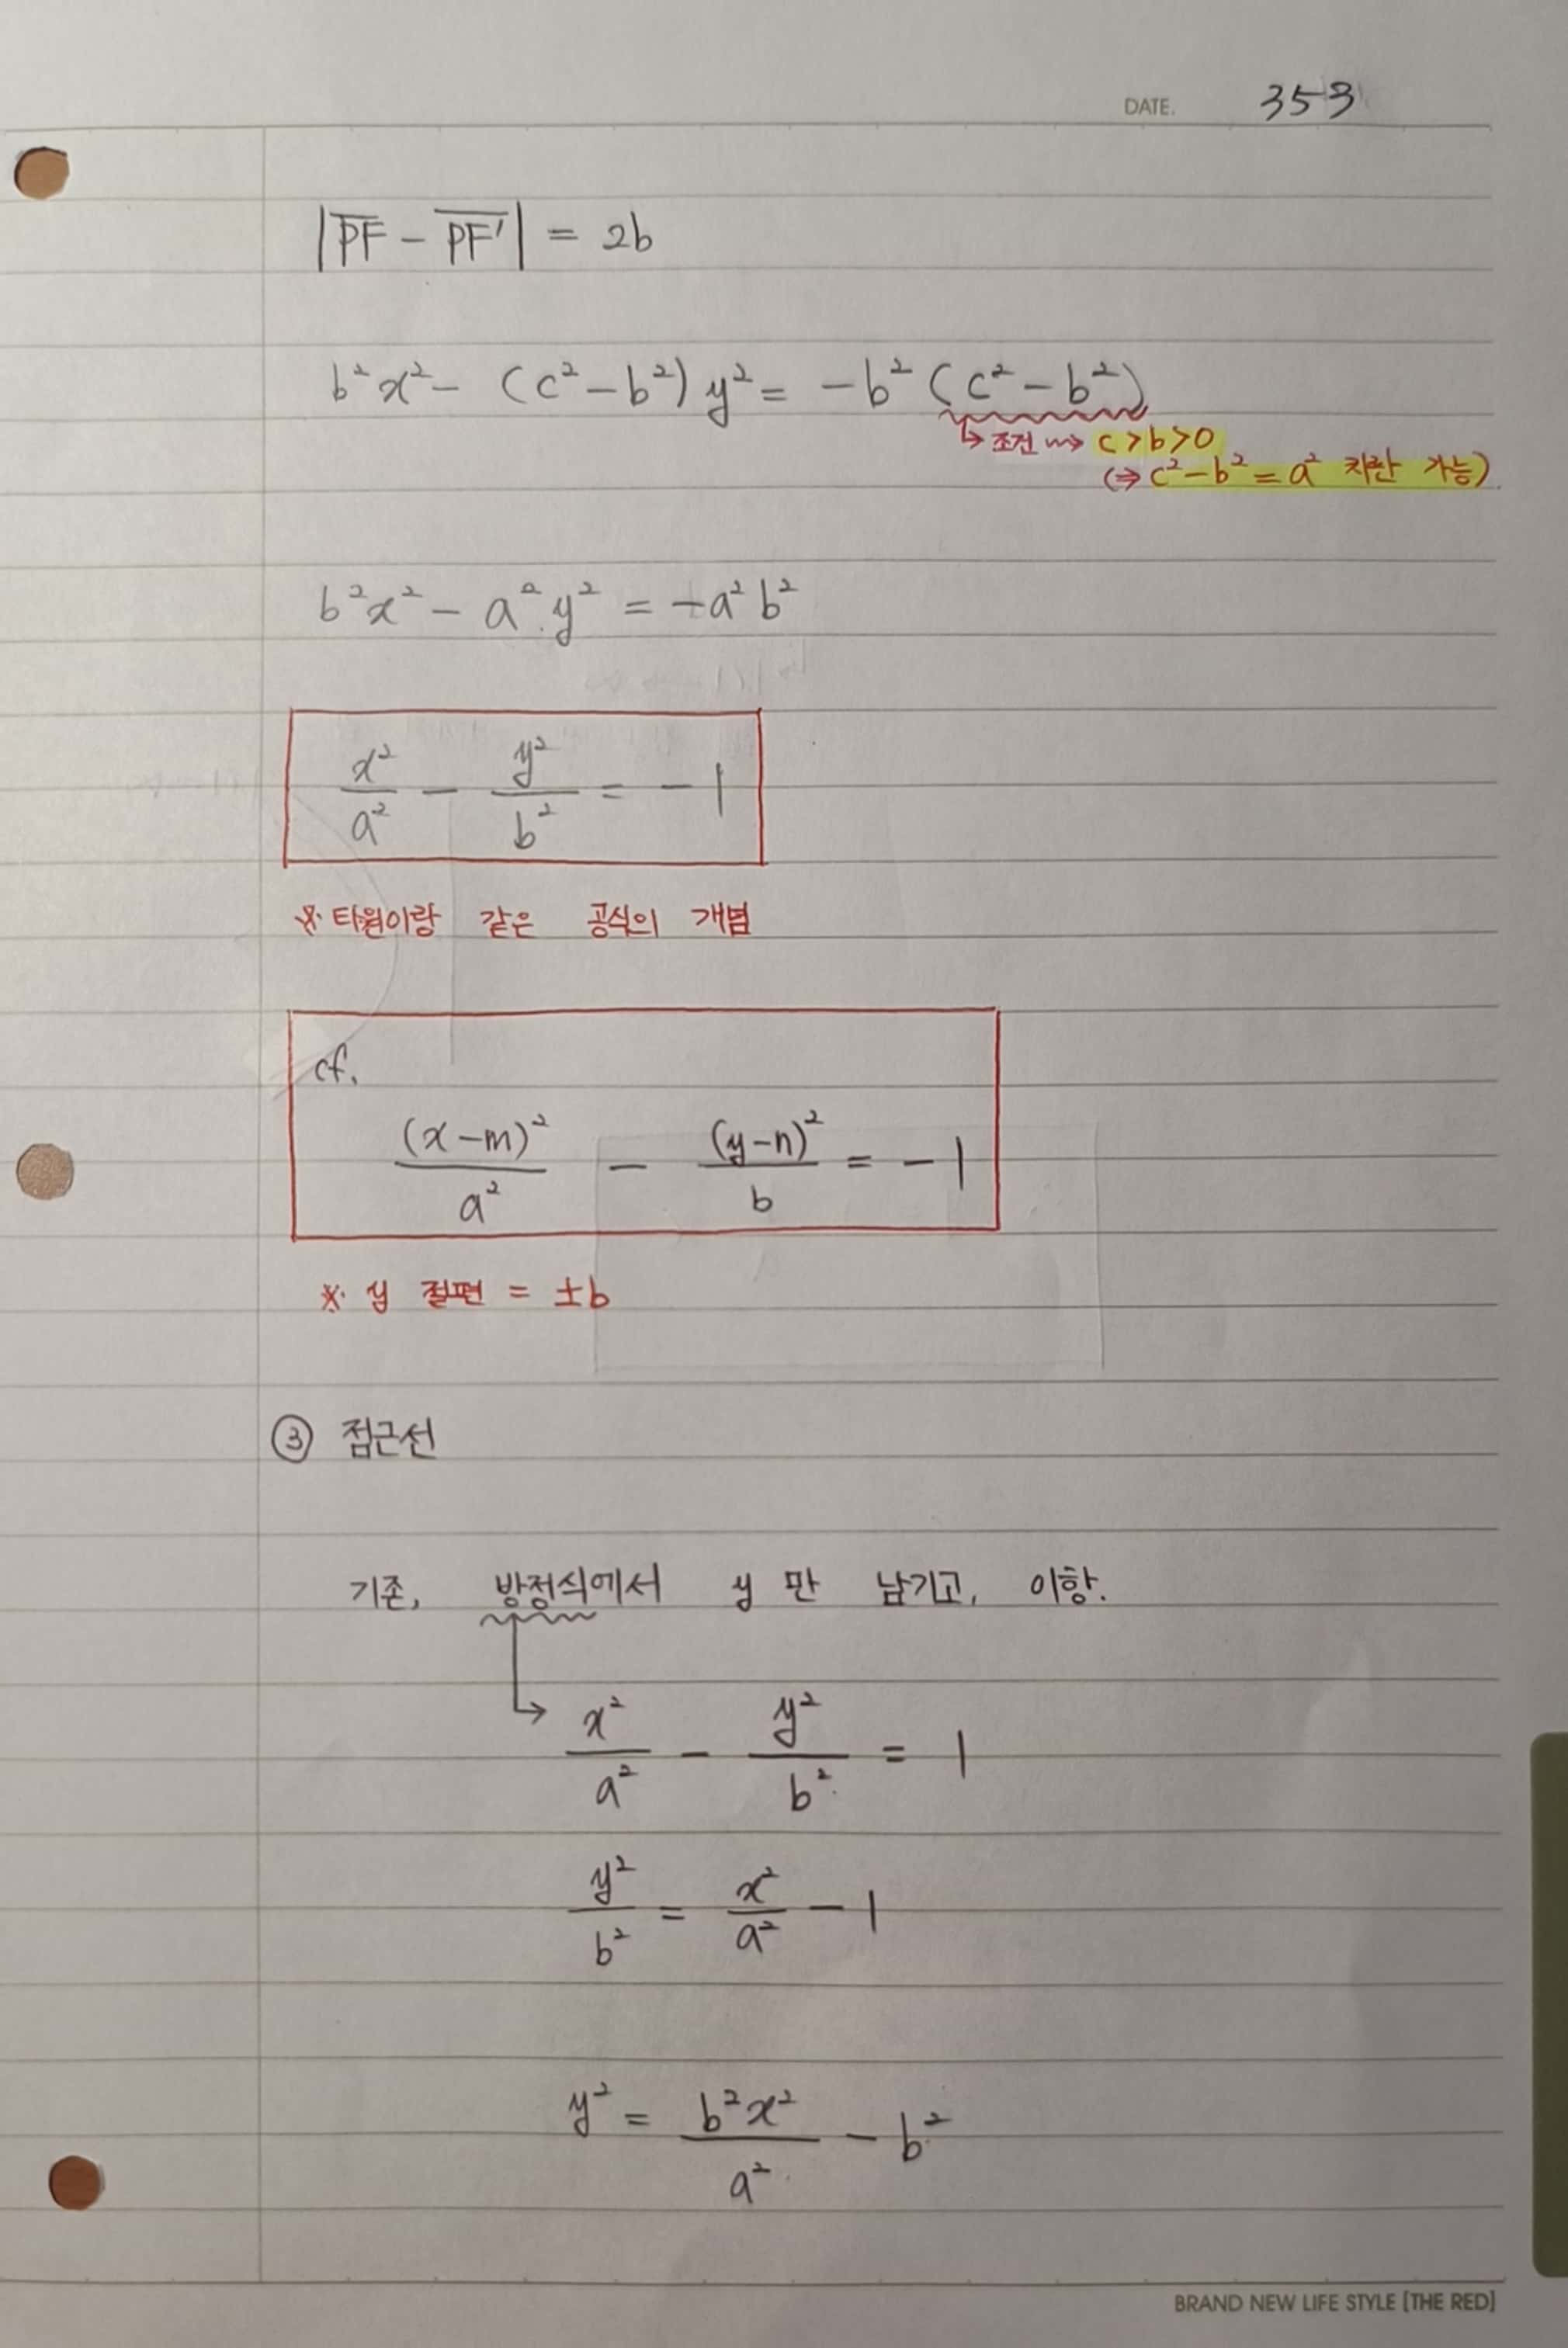 DATE. 353
|PF - PF'| = 2b
b²x² - (c² - b²) y² = -b² (c² - b²)
↳ 조건 ⇝ c > b > 0
(⇒ c² - b² = a² 치환 가능)
b²x² - a²y² = -a²b²
x²/a² - y²/b² = -1
※ 타원이랑 같은 공식의 개념
cf.
(x-m)²/a² - (y-n)²/b = -1
※ y 절편 = ±b
③ 점근선
기존, 방정식에서 y 만 남기고, 이항.
↳ x²/a² - y²/b² = 1
y²/b² = x²/a² - 1
y² = b²x²/a² - b²
BRAND NEW LIFE STYLE [THE RED]